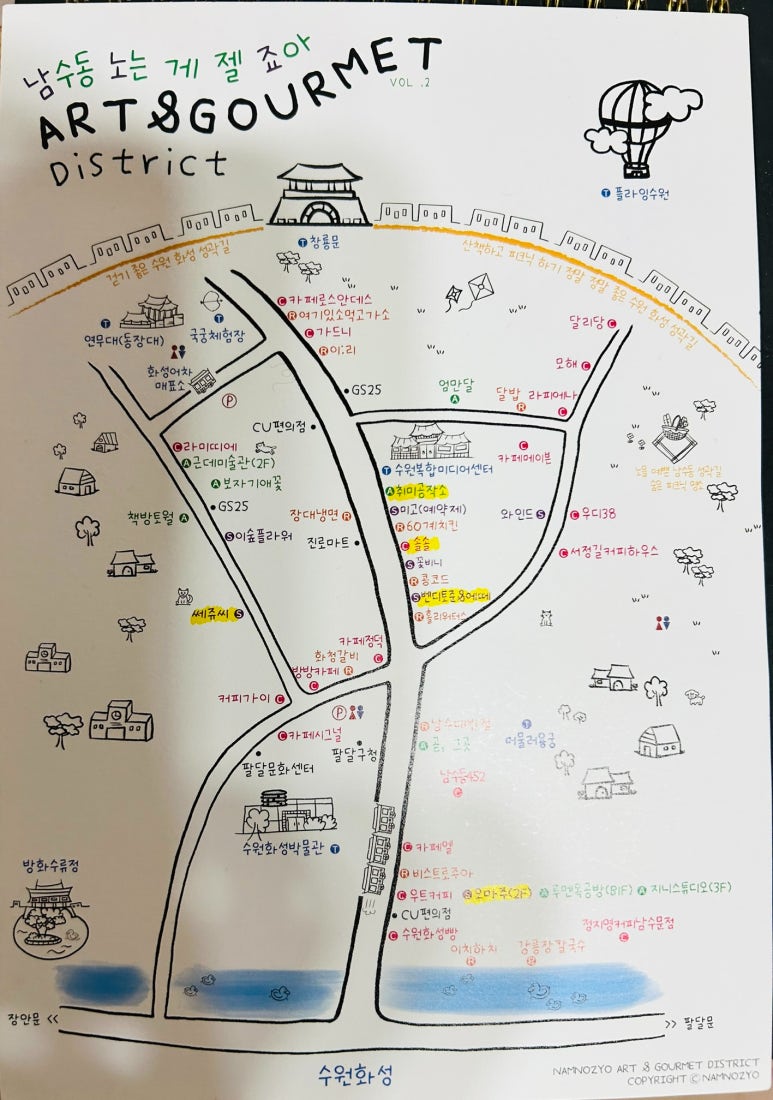 남수동 노는 게 젤 죠아
ART & GOURMET
VOL .2
District
T 플라잉수원
T 창룡문
걷기 좋은 수원 화성 성곽길
산책하고 피크닉 하기 정말 정말 좋은 수원 화성 성곽길
C 카페로스안데스
R 여기있소먹고가소
C 가드니
R 이:리
달리당 C
T
연무대(동장대)
T
국궁체험장
화성어차
매표소
P
모해 C
• GS25
엄만달
A
달밥
R
라피에나
C
CU편의점 •
C 라미띠에
A 근데미술관(2F)
A 보자기애꽃
• GS25
책방토월 A
S 이숲플라워
장대냉면 R
진로마트 •
T 수원복합미디어센터
C
카페메이븐
A 취미공작소
S 미고(예약제)
R 60계치킨
C 솔솔
S 꽃비니
R 콩코드
S 벤디토준&에떼
R 홀리워터스
와인드 S
C 우디38
C 서정길커피하우스
노을 예쁜 남수동 성곽길
숨은 피크닉 명소
쎄쥬씨 S
카페정덕
C
화청갈비
R
방방카페
C
커피가이 C
P
C 카페시그널
팔달구청
팔달문화센터
수원화성박물관 T
A 곧, 그곳
T
남수동452
C
C 카페옐
R 비스트로주아
C 우트커피
S 오마주(2F)
A 루멘독공방(B1F)
A 지니스튜디오(3F)
• CU편의점
C 수원화성빵
정지영커피남수문점
C
이치하치
R
강릉장칼국수
R
방화수류정
장안문 <<
>> 팔달문
수원화성
NAMNOZYO ART & GOURMET DISTRICT
COPYRIGHT © NAMNOZYO